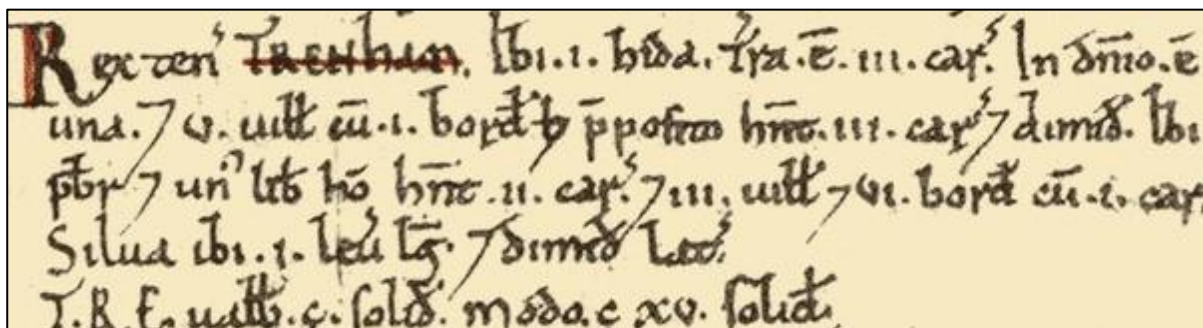 Rex ten' TRENHAM. Ibi .i. hida. Tr̃a .ē. iii. car'. In dn̄io .ē
una. ⁊ v. uilł cū .i. bord ⁊ p̄posito hn̄t .iii. car' ⁊ dimid̄. Ibi
p̄br ⁊ un' lib̄ hō hn̄t .ii. car'. ⁊ iii. uilł ⁊ vi. bord cū .i. car.
Silua ibi .i. leu' lḡ. ⁊ dimid̄ lat'.
T.R.E. ualb̄ .c. solid̄. modo. c xv. solid̄.